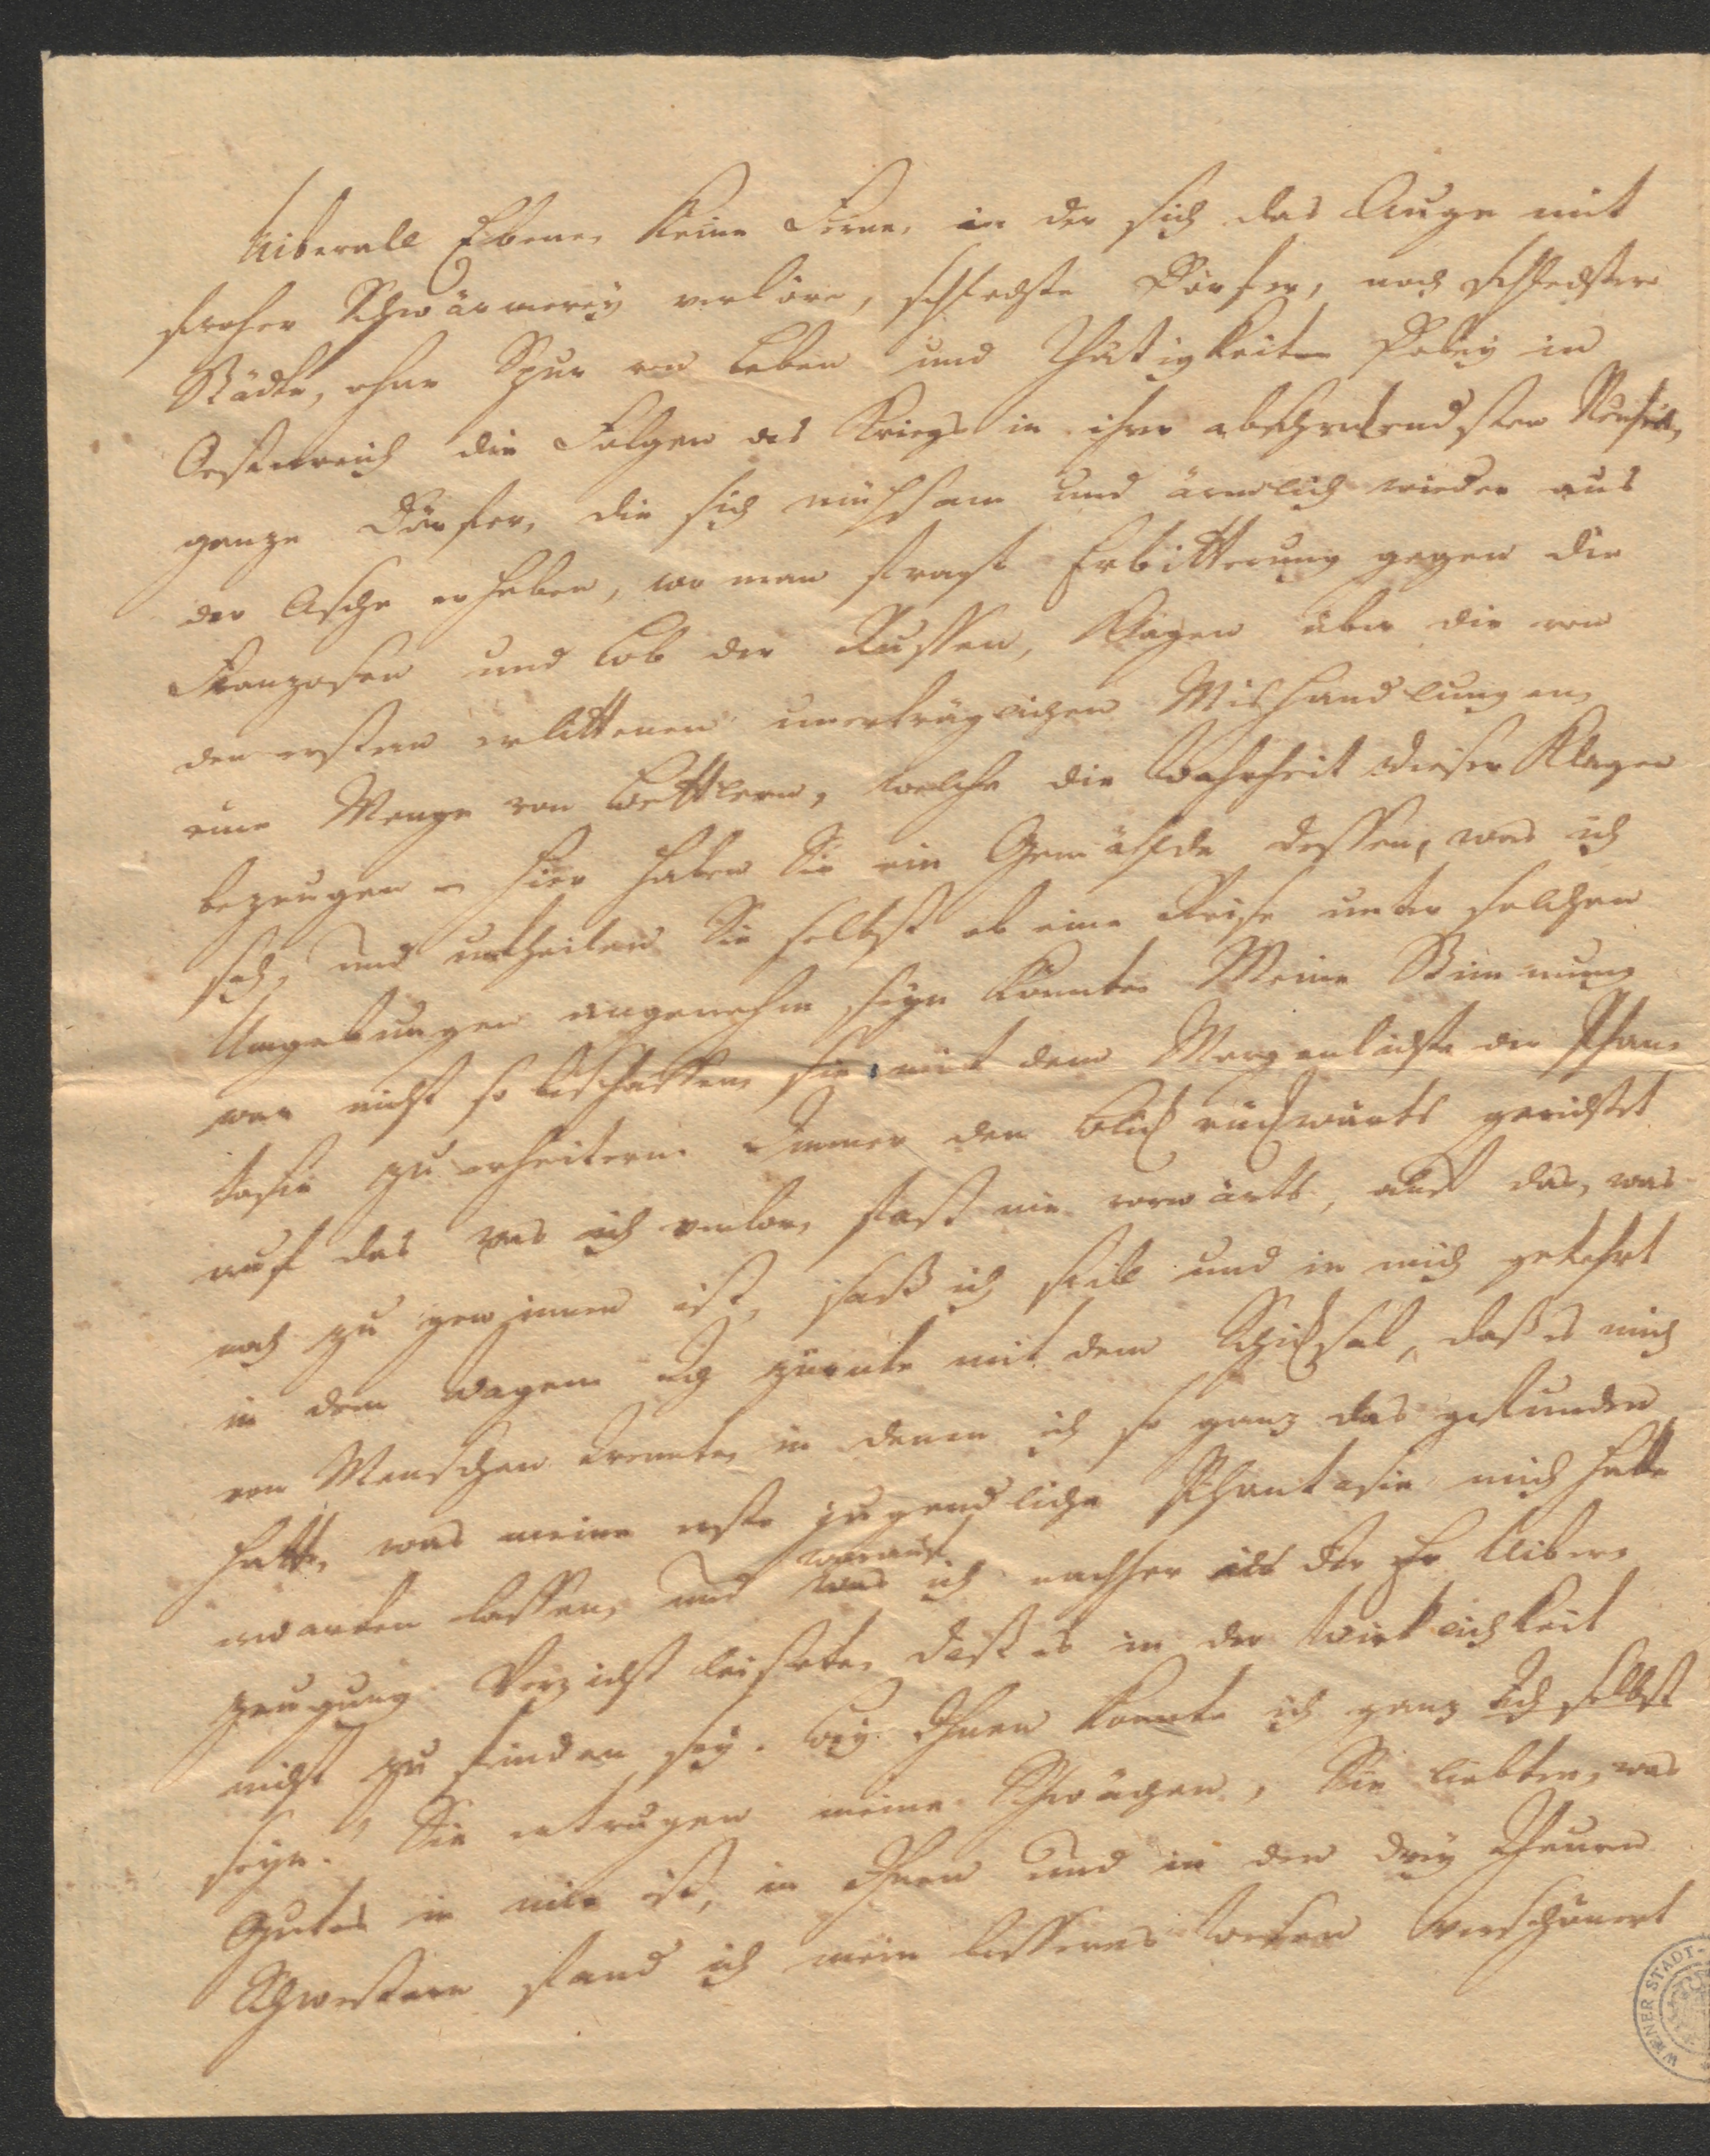 Uiberall Ebene, keine Ferne, in der sich das Auge mit
froher Schwärmerey verlöre, schlechte Dörfer, noch schlechtere
Städte, ohne Spur von Leben und Thätigkeit. Dabey in
Oestereich die Folgen des Kriegs in ihrer abschrekendsten
ganze Dörfer, die sich mühsam und ärmlich wieder aus
der Asche erheben, wo man fragt Erbitterung gegen die
Franzosen und Lob der Russen, Klagen über die von
den erstern erlittenen unerträglichen Mishandlungen,
eine Menge von Bettlern, welche die Wahrheit dieser Klagen
bezeugen – hier haben Sie ein Gemählde dessen, was ich
sah, und urtheilen Sie selbst ob eine Reise unter solchen
Umgebungen angenehm seyn konnte. Meine Stimmung
war nicht so beschaffen, sie mit dem Morgenlichte der Phan-
tasie zu erheitern. Immer den Blick rückwärts gerichtet
auf das was ich verlor, fast nie vorwärts, auf das, was
noch zu gewinnen ist, saß ich still und in mich gekehrt
in dem Wagen. Ich zürnte mit dem Schicksal, daß es mich
von Menschen trennte, in denen ich so ganz das gefunden
hatte, was meine erste jugendliche Phantasie mich hatte
erwarten lassen, und worauf was ich nachher mit der Uiber-
zeugung Verzicht leistete, daß es in der Wirklichkeit
nicht zu finden sey. Bey Ihnen konnte ich ganz Ich selbst
seyn. Sie ertrugen meine Schwächen, Sie liebten, was
Gutes in mir ist, in Ihnen und in den drey theuren
Schwestern fand ich mein besseres Wesen verschönert
WIENER STADT-